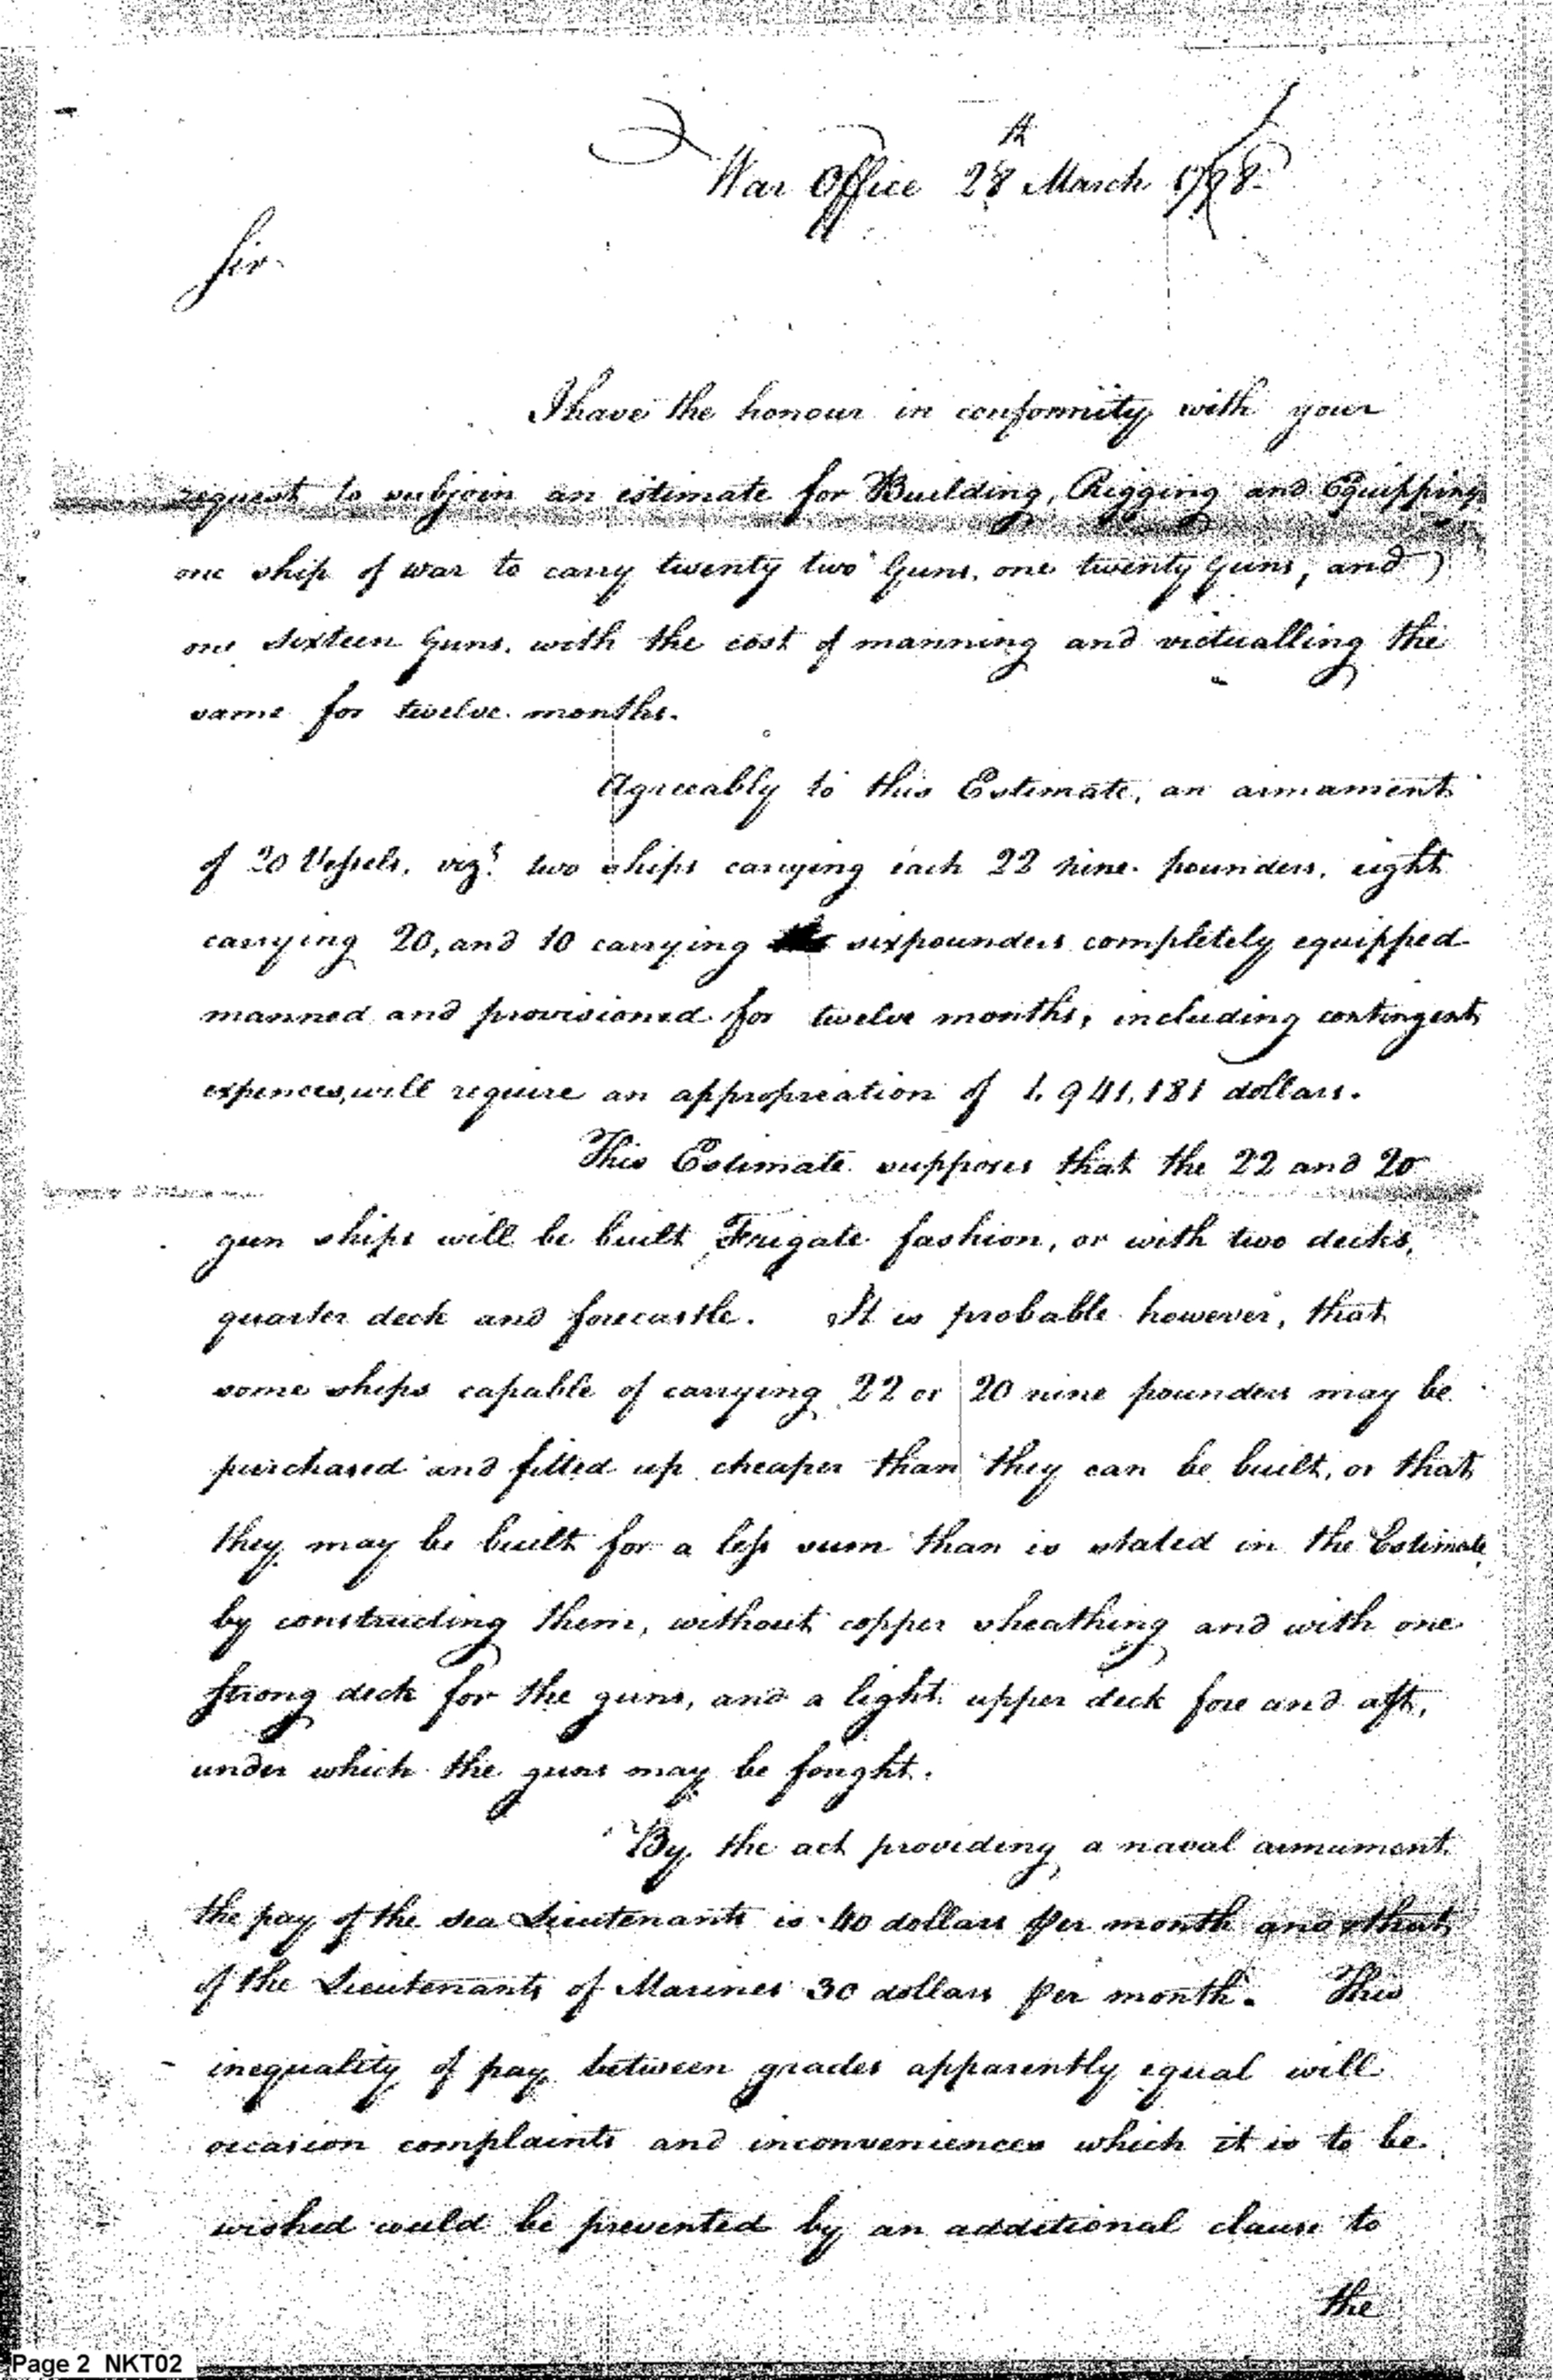 War Office 28th March 1798.
Sir.
I have the honour in conformity with your
request to subjoin an estimate for Building, Rigging and Equipping
one ship of war to carry twenty two Guns, one twenty Guns, and
one sixteen Guns, with the cost of manning and victualling the
same for twelve months.
Agreeably to this Estimate, an armament
of 20 Vessels, vizt. two ships carrying each 22 nine pounders, eight
carrying 20, and 10 carrying sixpounders completely equipped
manned and provisioned for twelve months, including contingent
expences, will require an appropriation of 1,941,181 dollars.
This Estimate supposes that the 22 and 20
gun ships will be built Frigate fashion, or with two decks,
quarter deck and forecastle. It is probable however, that
some ships capable of carrying 22 or 20 nine pounders may be
purchased and fitted up cheaper than they can be built, or that
they may be built for a less sum than is stated in the Estimate
by constructing them, without copper sheathing and with one
strong deck for the guns, and a light upper deck fore and aft,
under which the guns may be fought.
By the act providing a naval armament
the pay of the sea Lieutenants is 40 dollars per month and that
of the Lieutenants of Marines 30 dollars per month. This
inequality of pay between grades apparently equal will
occasion complaints and inconveniences which it is to be
wished could be prevented by an additional clause to
the
Page 2 NKT02